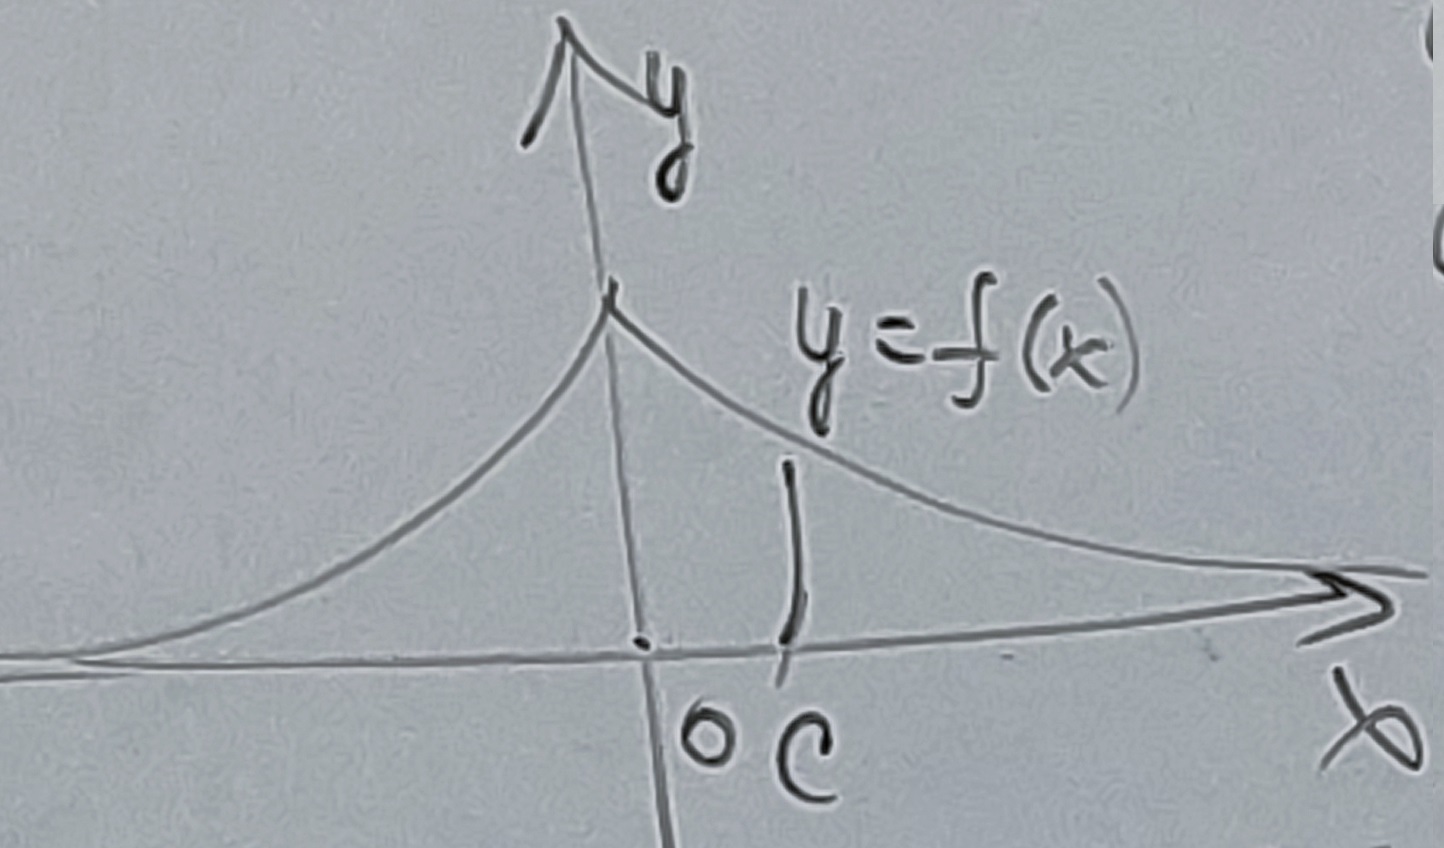 y
y = f(x)
0 C
x